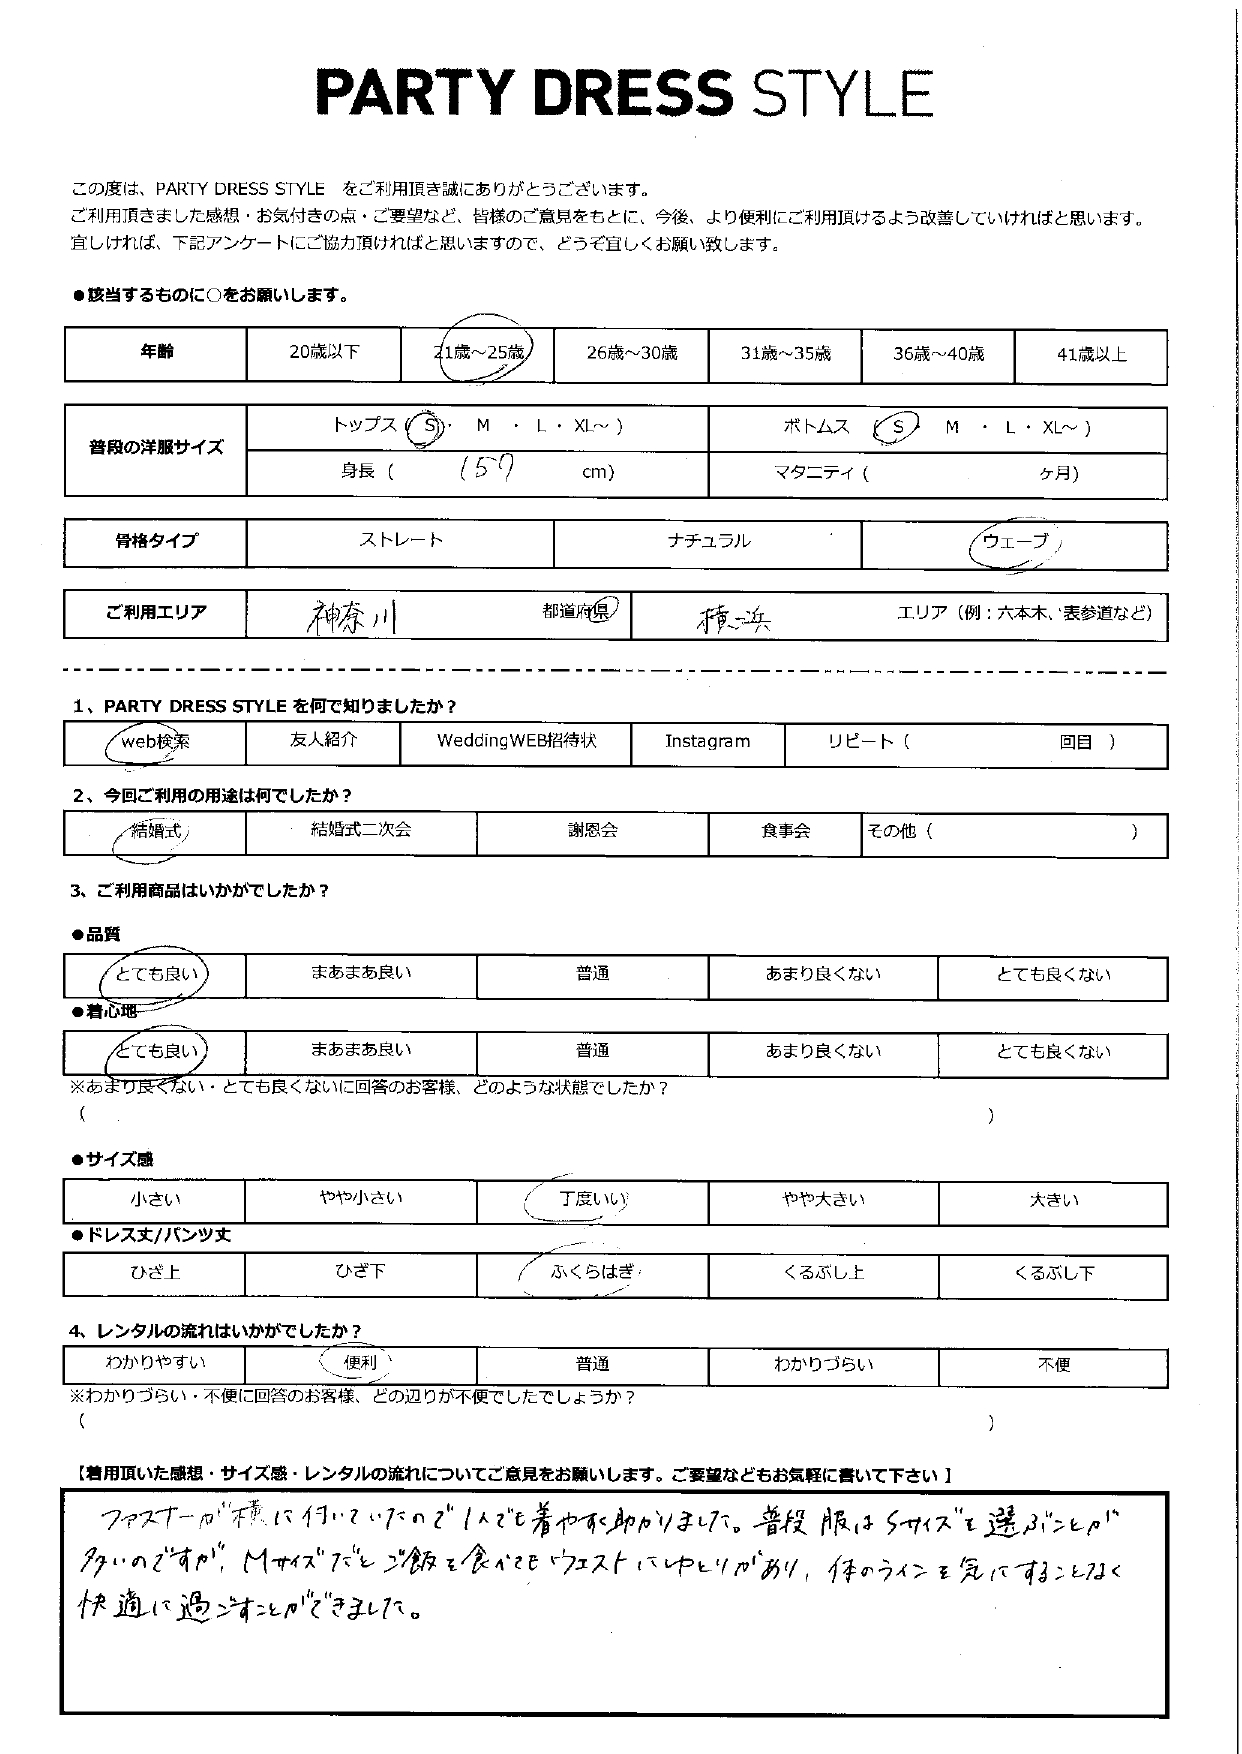 PARTY DRESS STYLE
この度は、PARTY DRESS STYLE　をご利用頂き誠にありがとうございます。
ご利用頂きました感想・お気付きの点・ご要望など、皆様のご意見をもとに、今後、より便利にご利用頂けるよう改善していければと思います。
宜しければ、下記アンケートにご協力頂ければと思いますので、どうぞ宜しくお願い致します。
●該当するものに○をお願いします。
年齢 20歳以下 21歳～25歳 26歳～30歳 31歳～35歳 36歳～40歳 41歳以上
普段の洋服サイズ トップス（ S ・ M ・ L ・ XL～ ） ボトムス （ S ・ M ・ L ・ XL～ ）
身長（ 157 cm） マタニティ（ ヶ月）
骨格タイプ ストレート ナチュラル ウェーブ
ご利用エリア 神奈川 都道府県 横浜 エリア（例：六本木、表参道など）
1、PARTY DRESS STYLE を何で知りましたか？
web検索 友人紹介 WeddingWEB招待状 Instagram リピート（ 回目 ）
2、今回ご利用の用途は何でしたか？
結婚式 結婚式二次会 謝恩会 食事会 その他（ ）
3、ご利用商品はいかがでしたか？
●品質
とても良い まあまあ良い 普通 あまり良くない とても良くない
●着心地
とても良い まあまあ良い 普通 あまり良くない とても良くない
※あまり良くない・とても良くないに回答のお客様、どのような状態でしたか？
（ ）
●サイズ感
小さい やや小さい 丁度いい やや大きい 大きい
●ドレス丈/パンツ丈
ひざ上 ひざ下 ふくらはぎ くるぶし上 くるぶし下
4、レンタルの流れはいかがでしたか？
わかりやすい 便利 普通 わかりづらい 不便
※わかりづらい・不便に回答のお客様、どの辺りが不便でしたでしょうか？
（ ）
【着用頂いた感想・サイズ感・レンタルの流れについてご意見をお願いします。ご要望などもお気軽に書いて下さい 】
ファスナーが横に付いていたので1人でも着やすく助かりました。普段服はSサイズを選ぶことが
多いのですが、Mサイズだとご飯を食べてもウエストにゆとりがあり、体のラインを気にすることなく
快適に過ごすことができました。